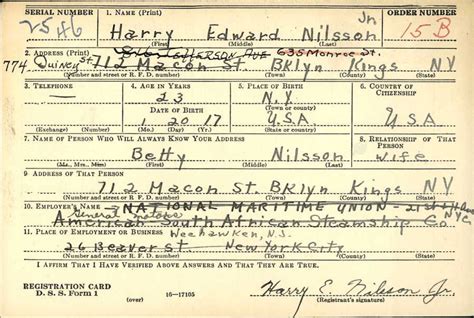 SERIAL NUMBER 1. NAME (Print) ORDER NUMBER
2546 Harry Edward Nilsson Jr 15 B
(First) (Middle) (Last)
2. ADDRESS (Print) Jefferson Ave 635 Monroe St.
774 Quincy St 712 Macon St. BKlyn Kings NY
(Number and street or R. F. D. number) (Town) (County) (State)
3. TELEPHONE 4. AGE IN YEARS 5. PLACE OF BIRTH 6. COUNTRY OF CITIZENSHIP
— 23 N.Y.
DATE OF BIRTH (Town or county)
1 20 17 U.S.A U.S.A
(Exchange) (Number) (Mo.) (Day) (Yr.) (State or country)
7. NAME OF PERSON WHO WILL ALWAYS KNOW YOUR ADDRESS 8. RELATIONSHIP OF THAT PERSON
Betty Nilsson wife
(Mr., Mrs., Miss) (First) (Middle) (Last)
9. ADDRESS OF THAT PERSON
712 Macon St. BKlyn Kings NY
(Number and street or R. F. D. number) (Town) (County) (State)
10. EMPLOYER'S NAME NATIONAL MARITIME UNION
General NYC
American South African Steamship Co
11. PLACE OF EMPLOYMENT OR BUSINESS Weehawken, N.J.
26 Beaver St New York City
(Number and street or R. F. D. number) (Town) (County) (State)
I AFFIRM THAT I HAVE VERIFIED ABOVE ANSWERS AND THAT THEY ARE TRUE.
REGISTRATION CARD
D. S. S. Form 1 16—17105 Harry E. Nilsson Jr.